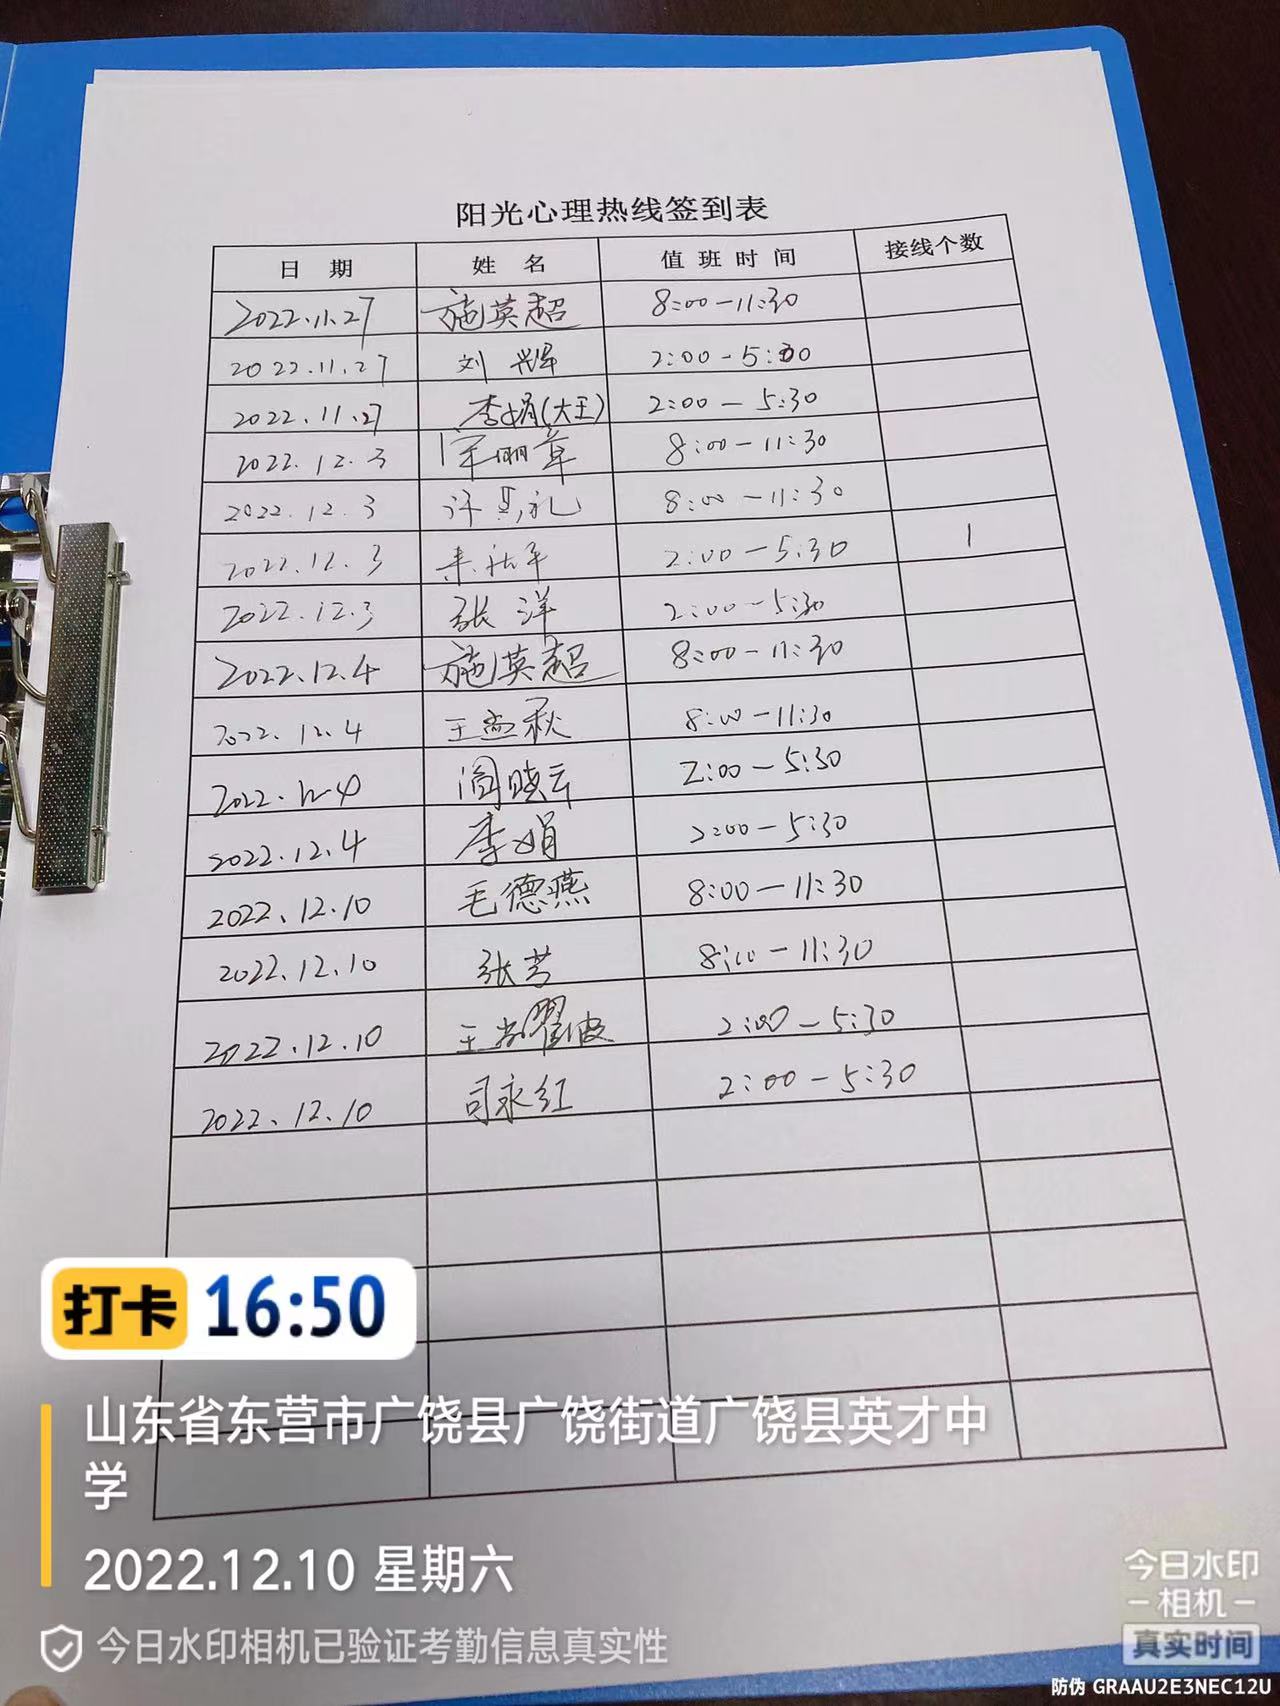 阳光心理热线签到表
日 期 姓 名 值 班 时 间 接线个数
2022.11.27 施英超 8:00-11:30
2022.11.27 刘 2:00-5:30
2022.11.27 李娟(大王) 2:00-5:30
2022.12.3 宋丽章 8:00-11:30
2022.12.3 8:00-11:30
2022.12.3 2:00-5:30 1
2022.12.3 张 洋 2:00-5:30
2022.12.4 施英超 8:00-11:30
2022.12.4 王孟秋 8:00-11:30
2022.12.4 阎晓云 2:00-5:30
2022.12.4 李娟 2:00-5:30
2022.12.10 毛德燕 8:00-11:30
2022.12.10 张芳 8:00-11:30
2022.12.10 2:00-5:30
2022.12.10 司永红 2:00-5:30
打卡 16:50
山东省东营市广饶县广饶街道广饶县英才中
学
2022.12.10 星期六
今日水印相机已验证考勤信息真实性
今日水印
-相机-
真实时间
防伪 GRAAU2E3NEC12U